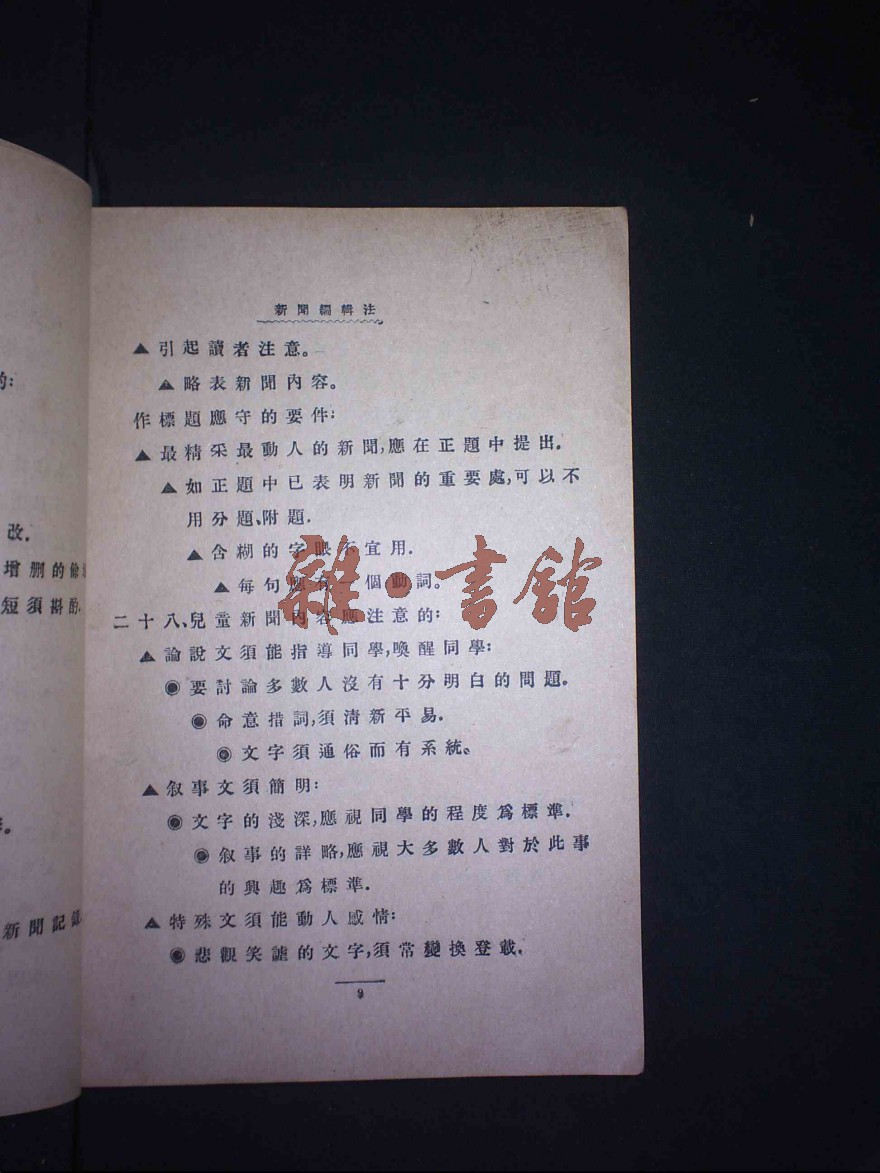 新聞編輯法
▲引起讀者注意。
▲略表新聞內容。
作標題應守的要件:
▲最精采最動人的新聞,應在正題中提出.
▲如正題中已表明新聞的重要處,可以不
用分題、附題.
▲含糊的字眼不宜用.
▲每句應有一個動詞。
二十八、兒童新聞內容應注意的:
▲論說文須能指導同學,喚醒同學:
◉要討論多數人沒有十分明白的問題。
◉命意措詞,須清新平易.
◉文字須通俗而有系統。
▲叙事文須簡明:
◉文字的淺深,應視同學的程度爲標準.
◉叙事的詳略,應視大多數人對於此事
的興趣爲標準.
▲特殊文須能動人感情:
◉悲觀笑謔的文字,須常變換登載.
9
的:
改.
增刪的餘
短須斟酌
。
新聞記
雜·書館